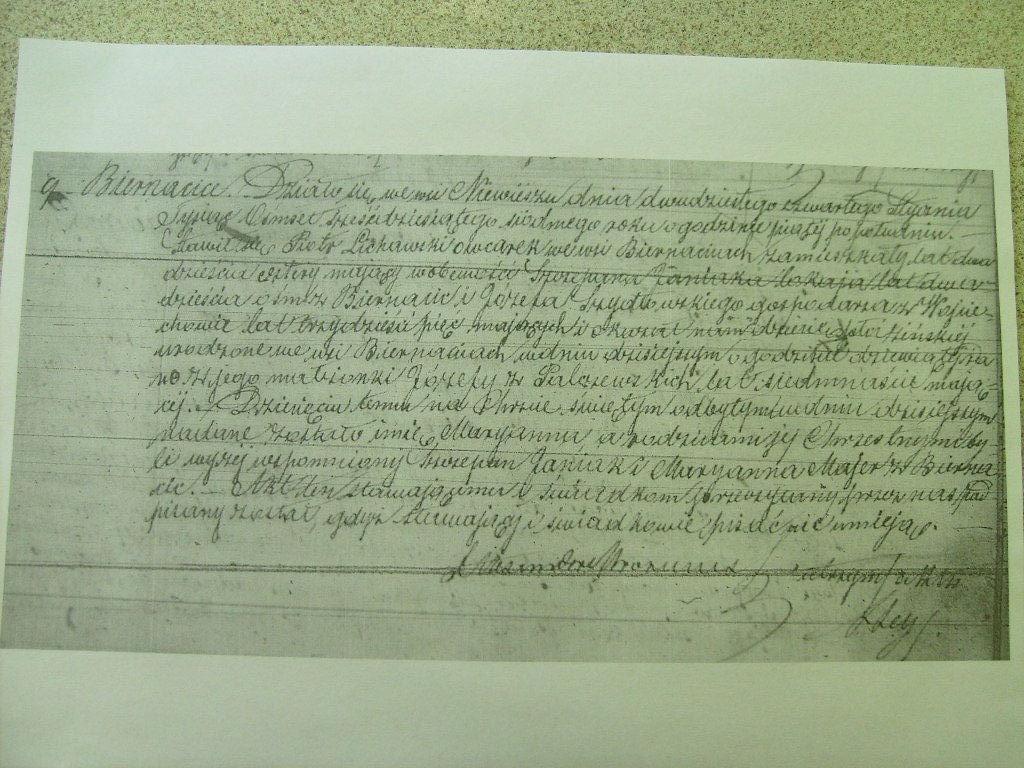 9. Biernacice. Działo się we wsi Niewieszu dnia dwudziestego czwartego Stycznia
Tysiąc Osmset sześćdziesiątego siódmego roku o godzinie piątej po południu. —
Stawił się Piotr owczarek we wsi Biernacicach zamieszkały lat dwa
dzieścia cztery mający w obecności Szczepana Janiaka lokaja lat dwa
dzieścia ośm z Biernacic i Józefa Szydłowskiego gospodarza z Wojcie-
chowic lat trzydzieści pięć mających i okazał nam dziecię płci żińskiej
urodzone we wsi Biernacicach w dniu dzisiejszym o godzinie dziewiątej ra
no z jego małżonki Józefy z Palczewskich lat siedmnaście mają-
cej. — Dziecięciu temu na Chrzcie świętym odbytym w dniu dzisiejszym
nadane zostało imię Maryanna a rodzicami jej Chrzestnymi by-
li wyżej wspomniany Szczepan Janiak i Maryanna Majer z Bierna
cic. — Akt ten stawającemu i świadkom przeczytany przez nas pod
pisany został, gdyż stawający i świadkowie pisać nie umieją.